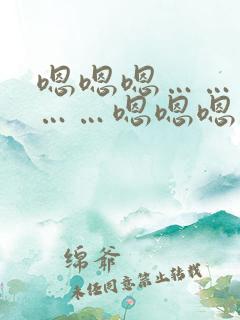 嗯嗯嗯……
……嗯嗯嗯
绵爷
未经同意禁止转载